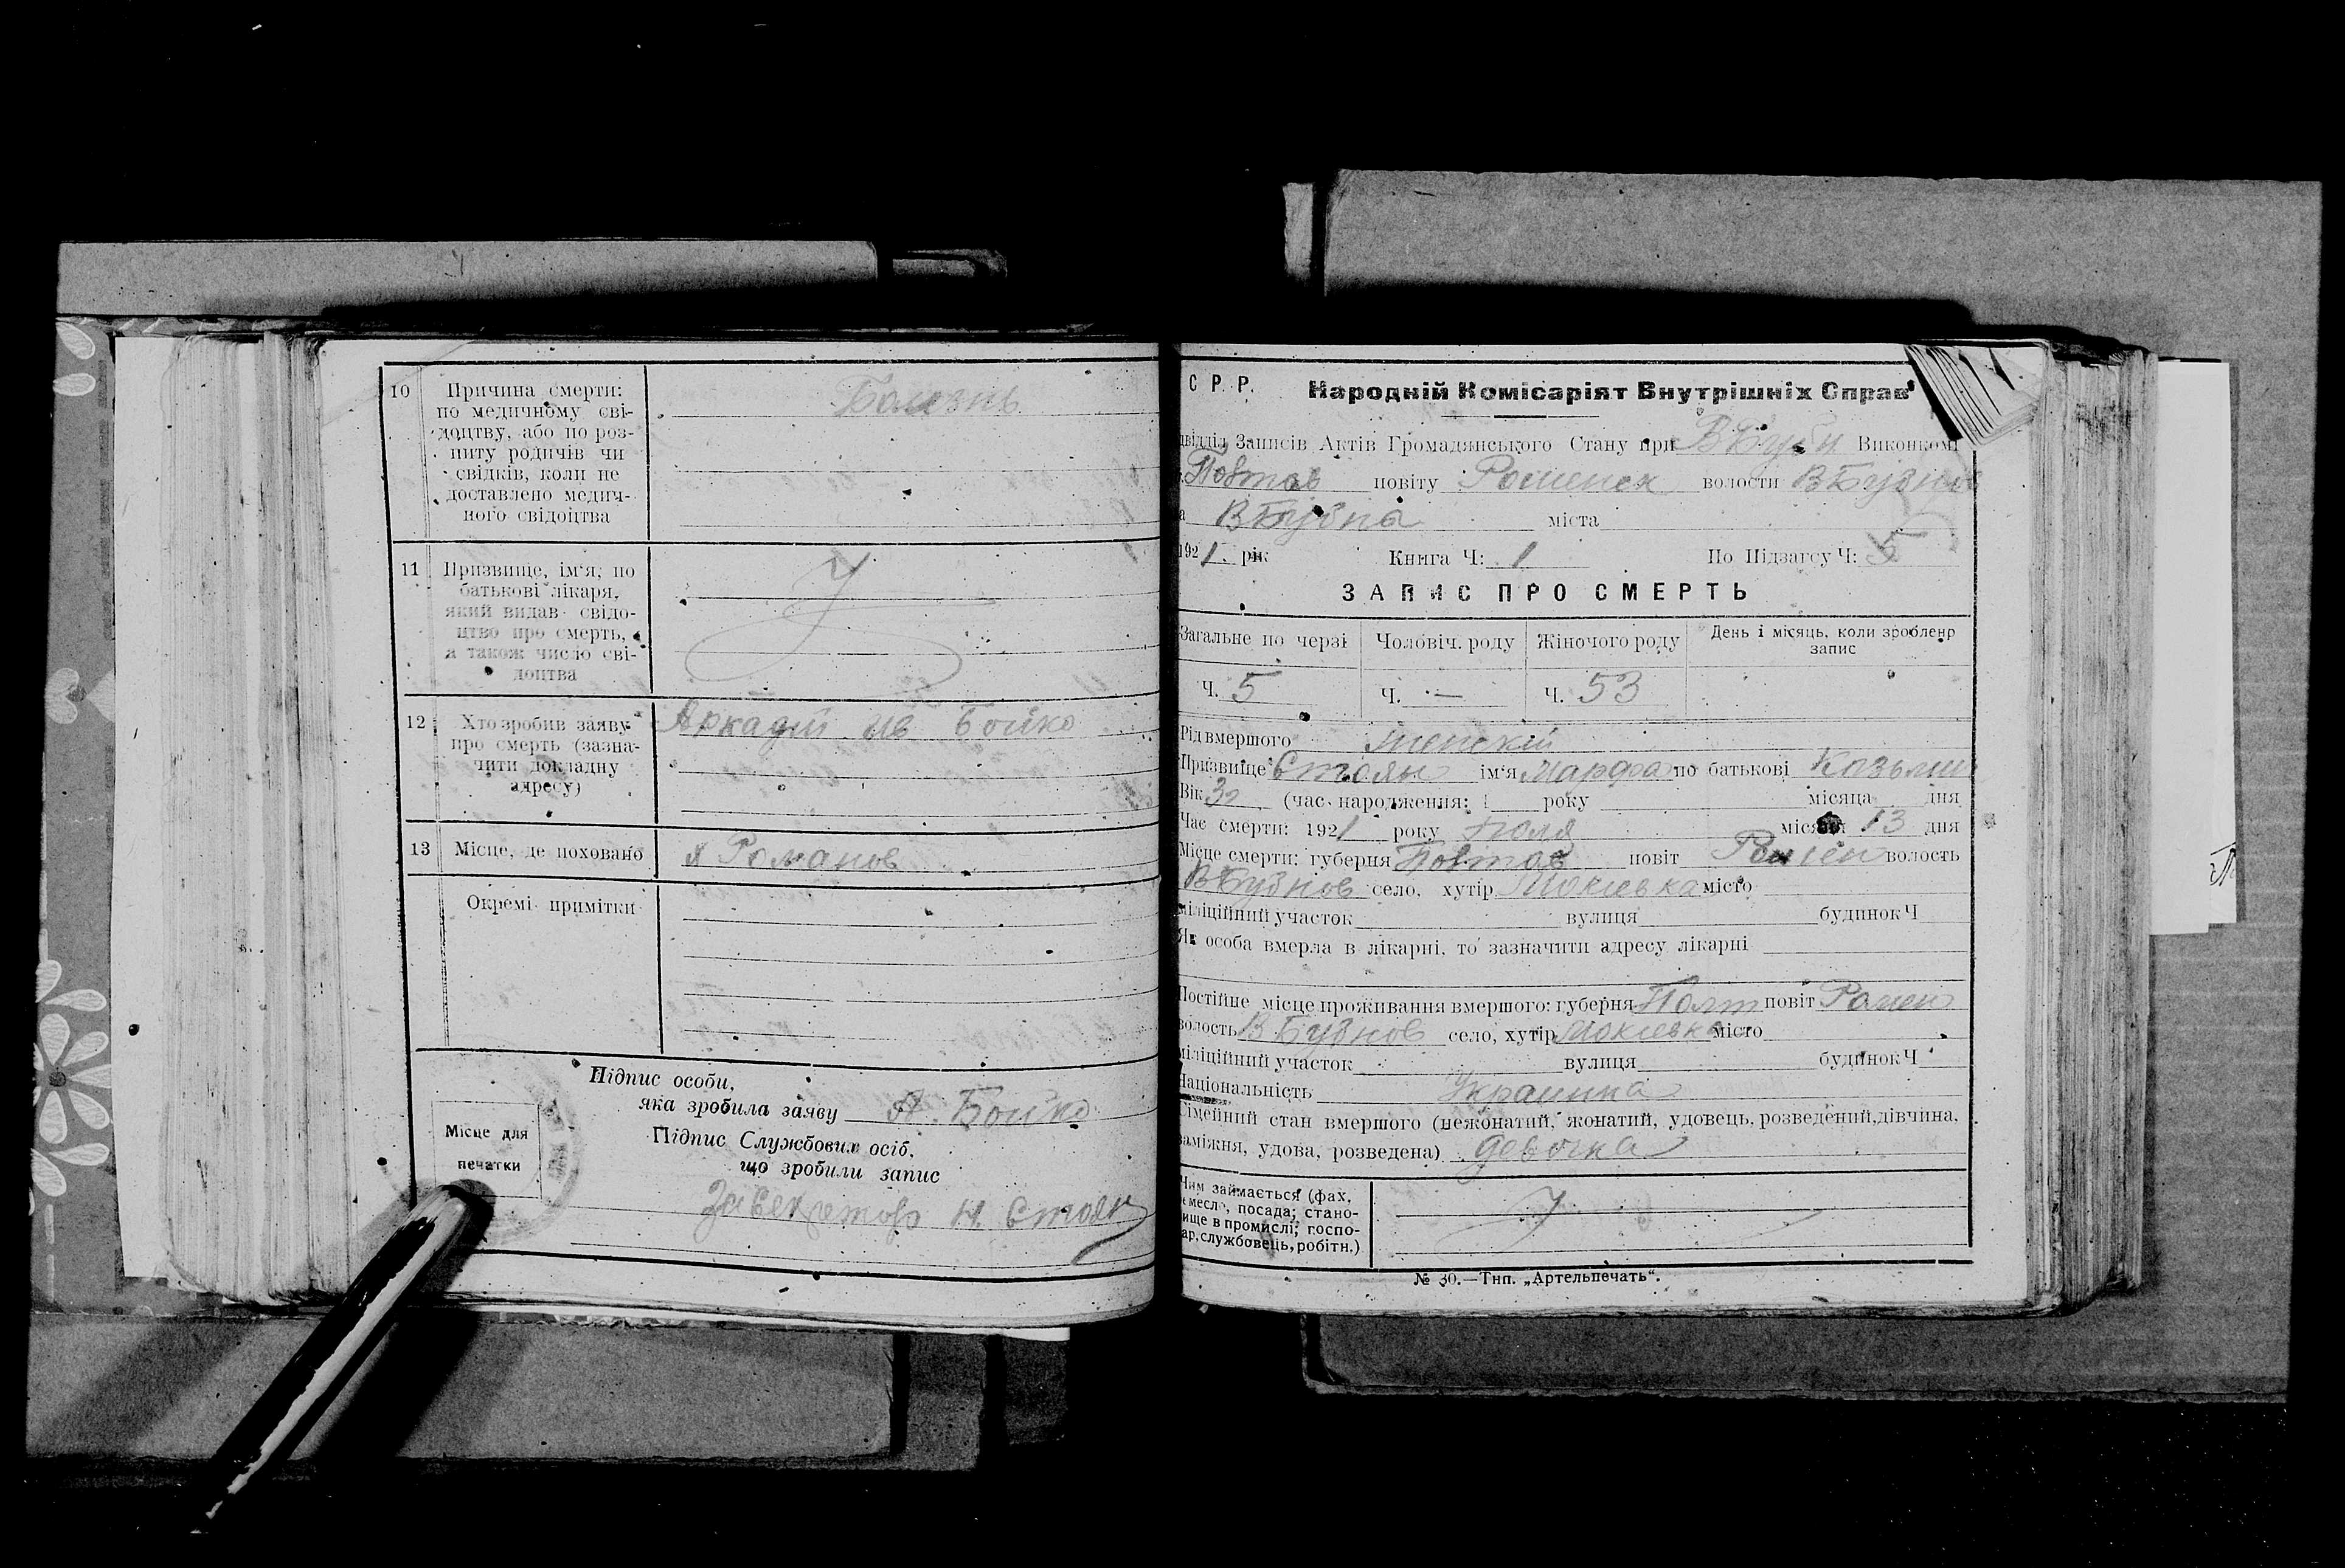 10 Причина смерти: Болезнь
по медичному сві-
доцтву, або по роз-
питу родичів чи
свідків, коли не
доставлено медич-
ного свідоцтва
11 Призвище, ім'я, по
батькові лікаря,
який видав свідо-
цтво про смерть,
а також число сві-
доцтва
12 Хто зробив заяву Аркадій Ив Бойко
про смерть (зазна-
чити докладну
адресу)
13 Місце, де поховано Романов
Окремі примітки
Підпис особи,
яка зробила заяву А. Бойко
Місце для
печатки
Підпис Службових осіб,
що зробили запис
Н. Стоян
С Р. Р. Народній Комісаріят Внутрішніх Справ
двідділ Записів Актів Громадянського Стану при В Бубн Виконкомі
Полтав повіту Роменск волости В Бубнов
а В Бубна міста
1921 рік Книга Ч: 1 По Підзагсу Ч: 5
ЗАПИС ПРО СМЕРТЬ
Загальне по черзі Чоловіч. роду Жіночого роду День і місяць, коли зроблено запис
Ч. 5 Ч. — Ч. 53
Рід вмершого женский
Призвище Стоян ім'я Марфа по батькові Козьми
Вік (час народження: 1 року місяця дня
Час смерти: 1921 року місяця 13 дня
Місце смерти: губерня Полтав повіт Ромен волость
В Бубнов село, хутір Мокиевка місто
міліційний участок вулиця будинок Ч
Як особа вмерла в лікарні, то зазначити адресу лікарні
Постійне місце проживання вмершого: губерня Полт повіт Ромен
волость В Бубнов село, хутір Мокиевка місто
міліційний участок вулиця будинок Ч
Національність Украинка
Сімейний стан вмершого (нежонатий, жонатий, удовець, розведений, дівчина,
заміжня, удова, розведена) девочка
Чим займається (фах,
емесло, посада; стано-
вище в промислі; госпо-
ар, службовець, робітн.)
№ 30.—Тип. „Артельпечать“.